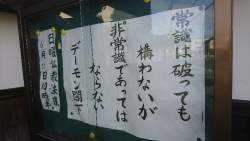 常識は破っても
構わないが
非常識であっては
ならない
デーモン閣下
日曜仏教法座